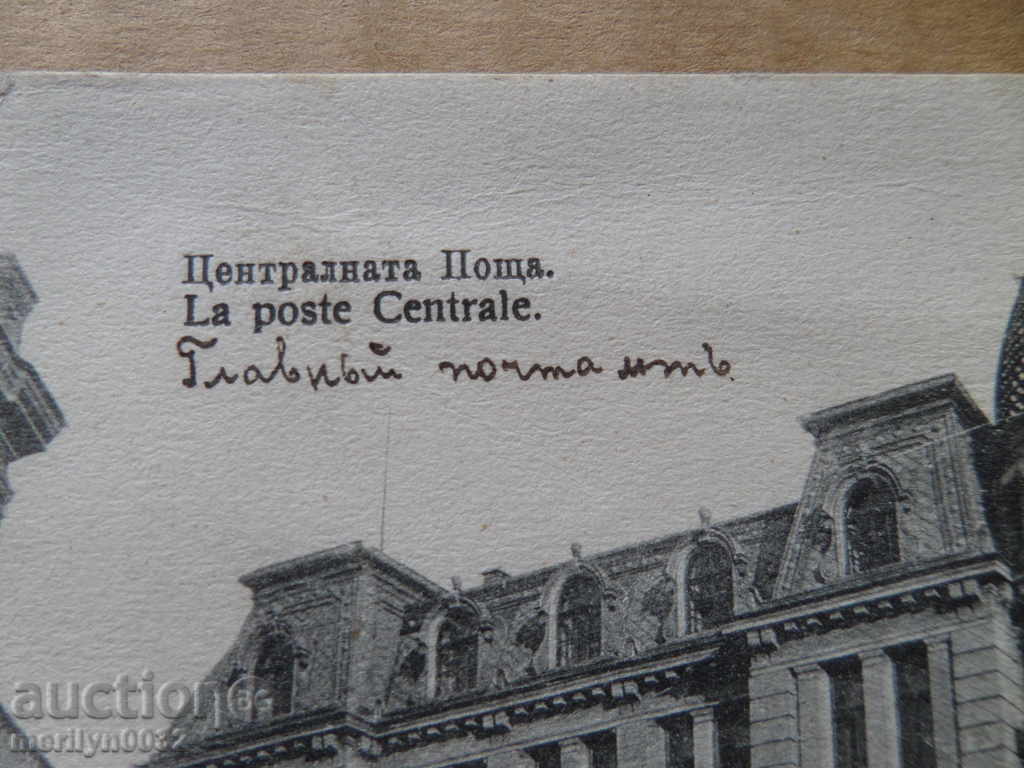 Централната Поща.
La poste Centrale.
Главный почтамтъ.
auction
merilyn0032